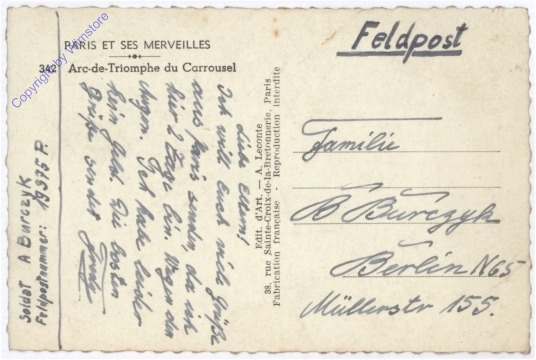 PARIS ET SES MERVEILLES
342 Arc-de-Triomphe du Carrousel
Liebe Eltern!
Ich will Euch viele Grüße
aus Paris senden, da ich
hier 2 Tage bin. Wegen den
Ich habe leider
kein Geld. Die besten
Grüße sendet
Soldat A Burczyk
Feldpostnummer: 19375 P.
Edit. d'Art. — A. Leconte
38, rue Sainte-Croix-de-la-Bretonnerie, Paris
Fabrication française Reproduction interdite
Feldpost
Familie
B Burczyk
Berlin N65
Müllerstr 155.
Copyright by Wamstore